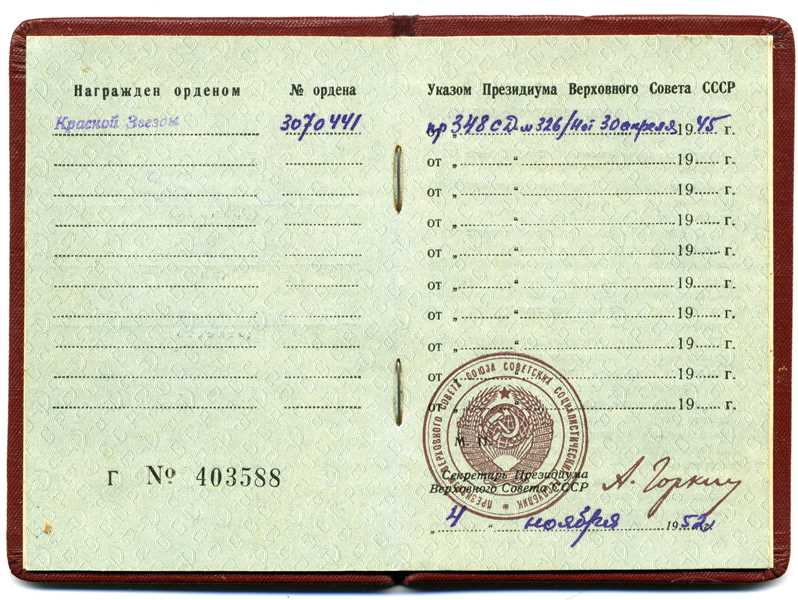 Награжден орденом
Красной Звезды
г № 403588
№ ордена
3070441
Указом Президиума Верховного Совета СССР
пр 348 СД № 326/Н от 30 апреля 1945 г.
от „ “ 19 г.
от „ “ 19 г.
от „ “ 19 г.
от „ “ 19 г.
от „ “ 19 г.
от „ “ 19 г.
от „ “ 19 г.
от „ “ 19 г.
от „ “ 19 г.
М. П.
Секретарь Президиума
Верховного Совета СССР
А. Горкин
„ 4 “ ноября 1952 г.
ПРЕЗИДИУМ ВЕРХОВНОГО СОВЕТА СОЮЗА СОВЕТСКИХ СОЦИАЛИСТИЧЕСКИХ РЕСПУБЛИК